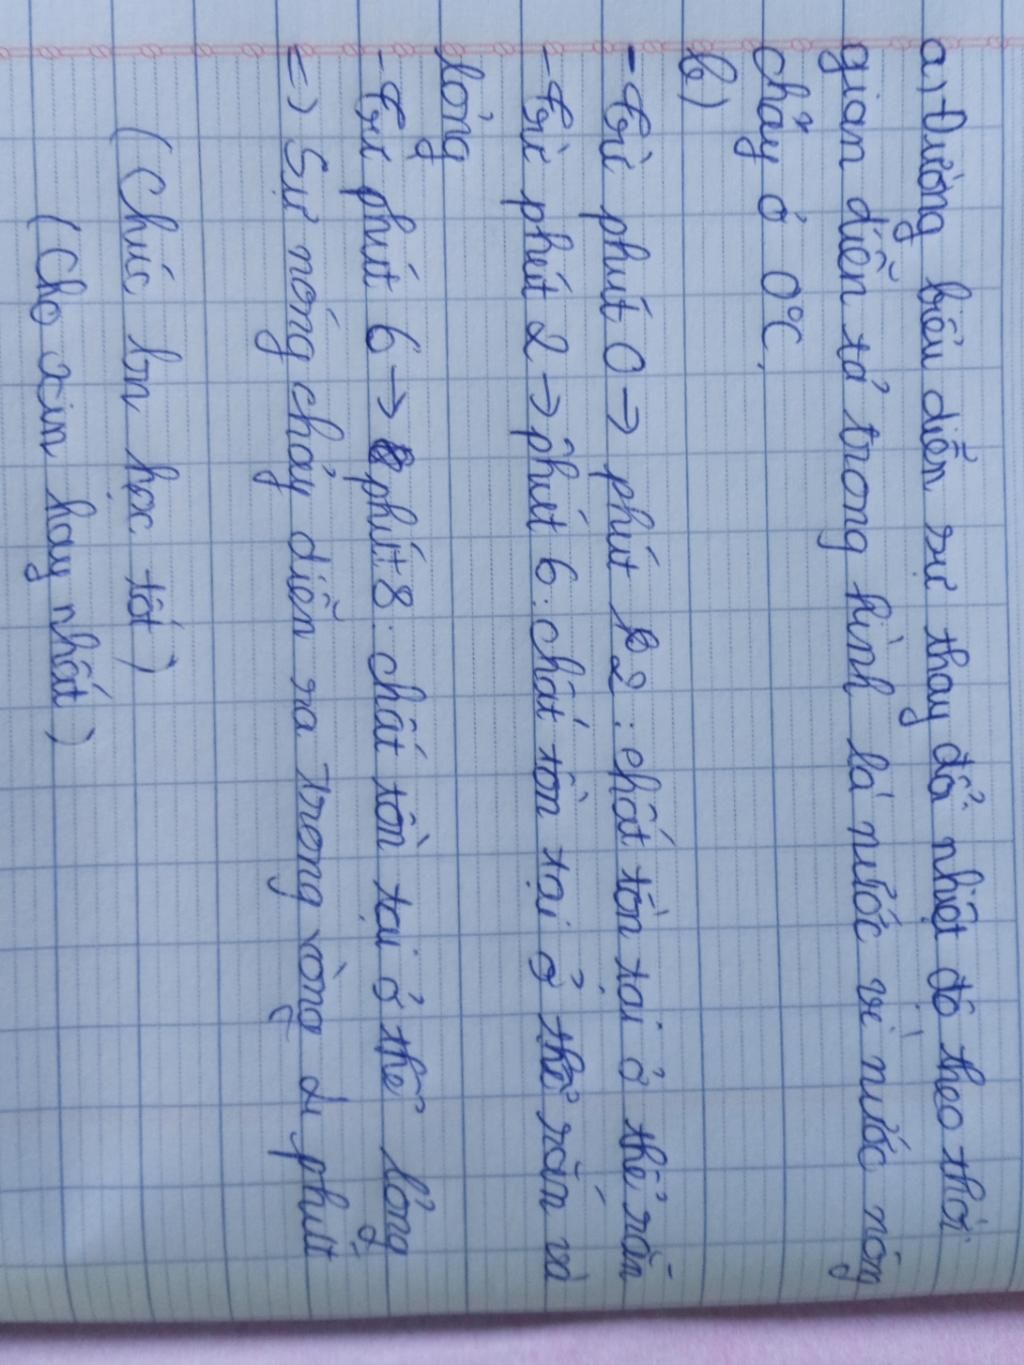 a) Đường biểu diễn sự thay đổi nhiệt độ theo thời
gian diễn tả trong hình là nước vì nước nóng
chảy ở 0°C.
b)
- từ phút 0 → phút 2 : chất tồn tại ở thể rắn
- từ phút 2 → phút 6 : chất tồn tại ở thể rắn và
lỏng
- từ phút 6 → phút 8 : chất tồn tại ở thể lỏng
=> Sự nóng chảy diễn ra trong vòng 2 phút
(Chúc bn học tốt)
(Cho xin hay nhất)